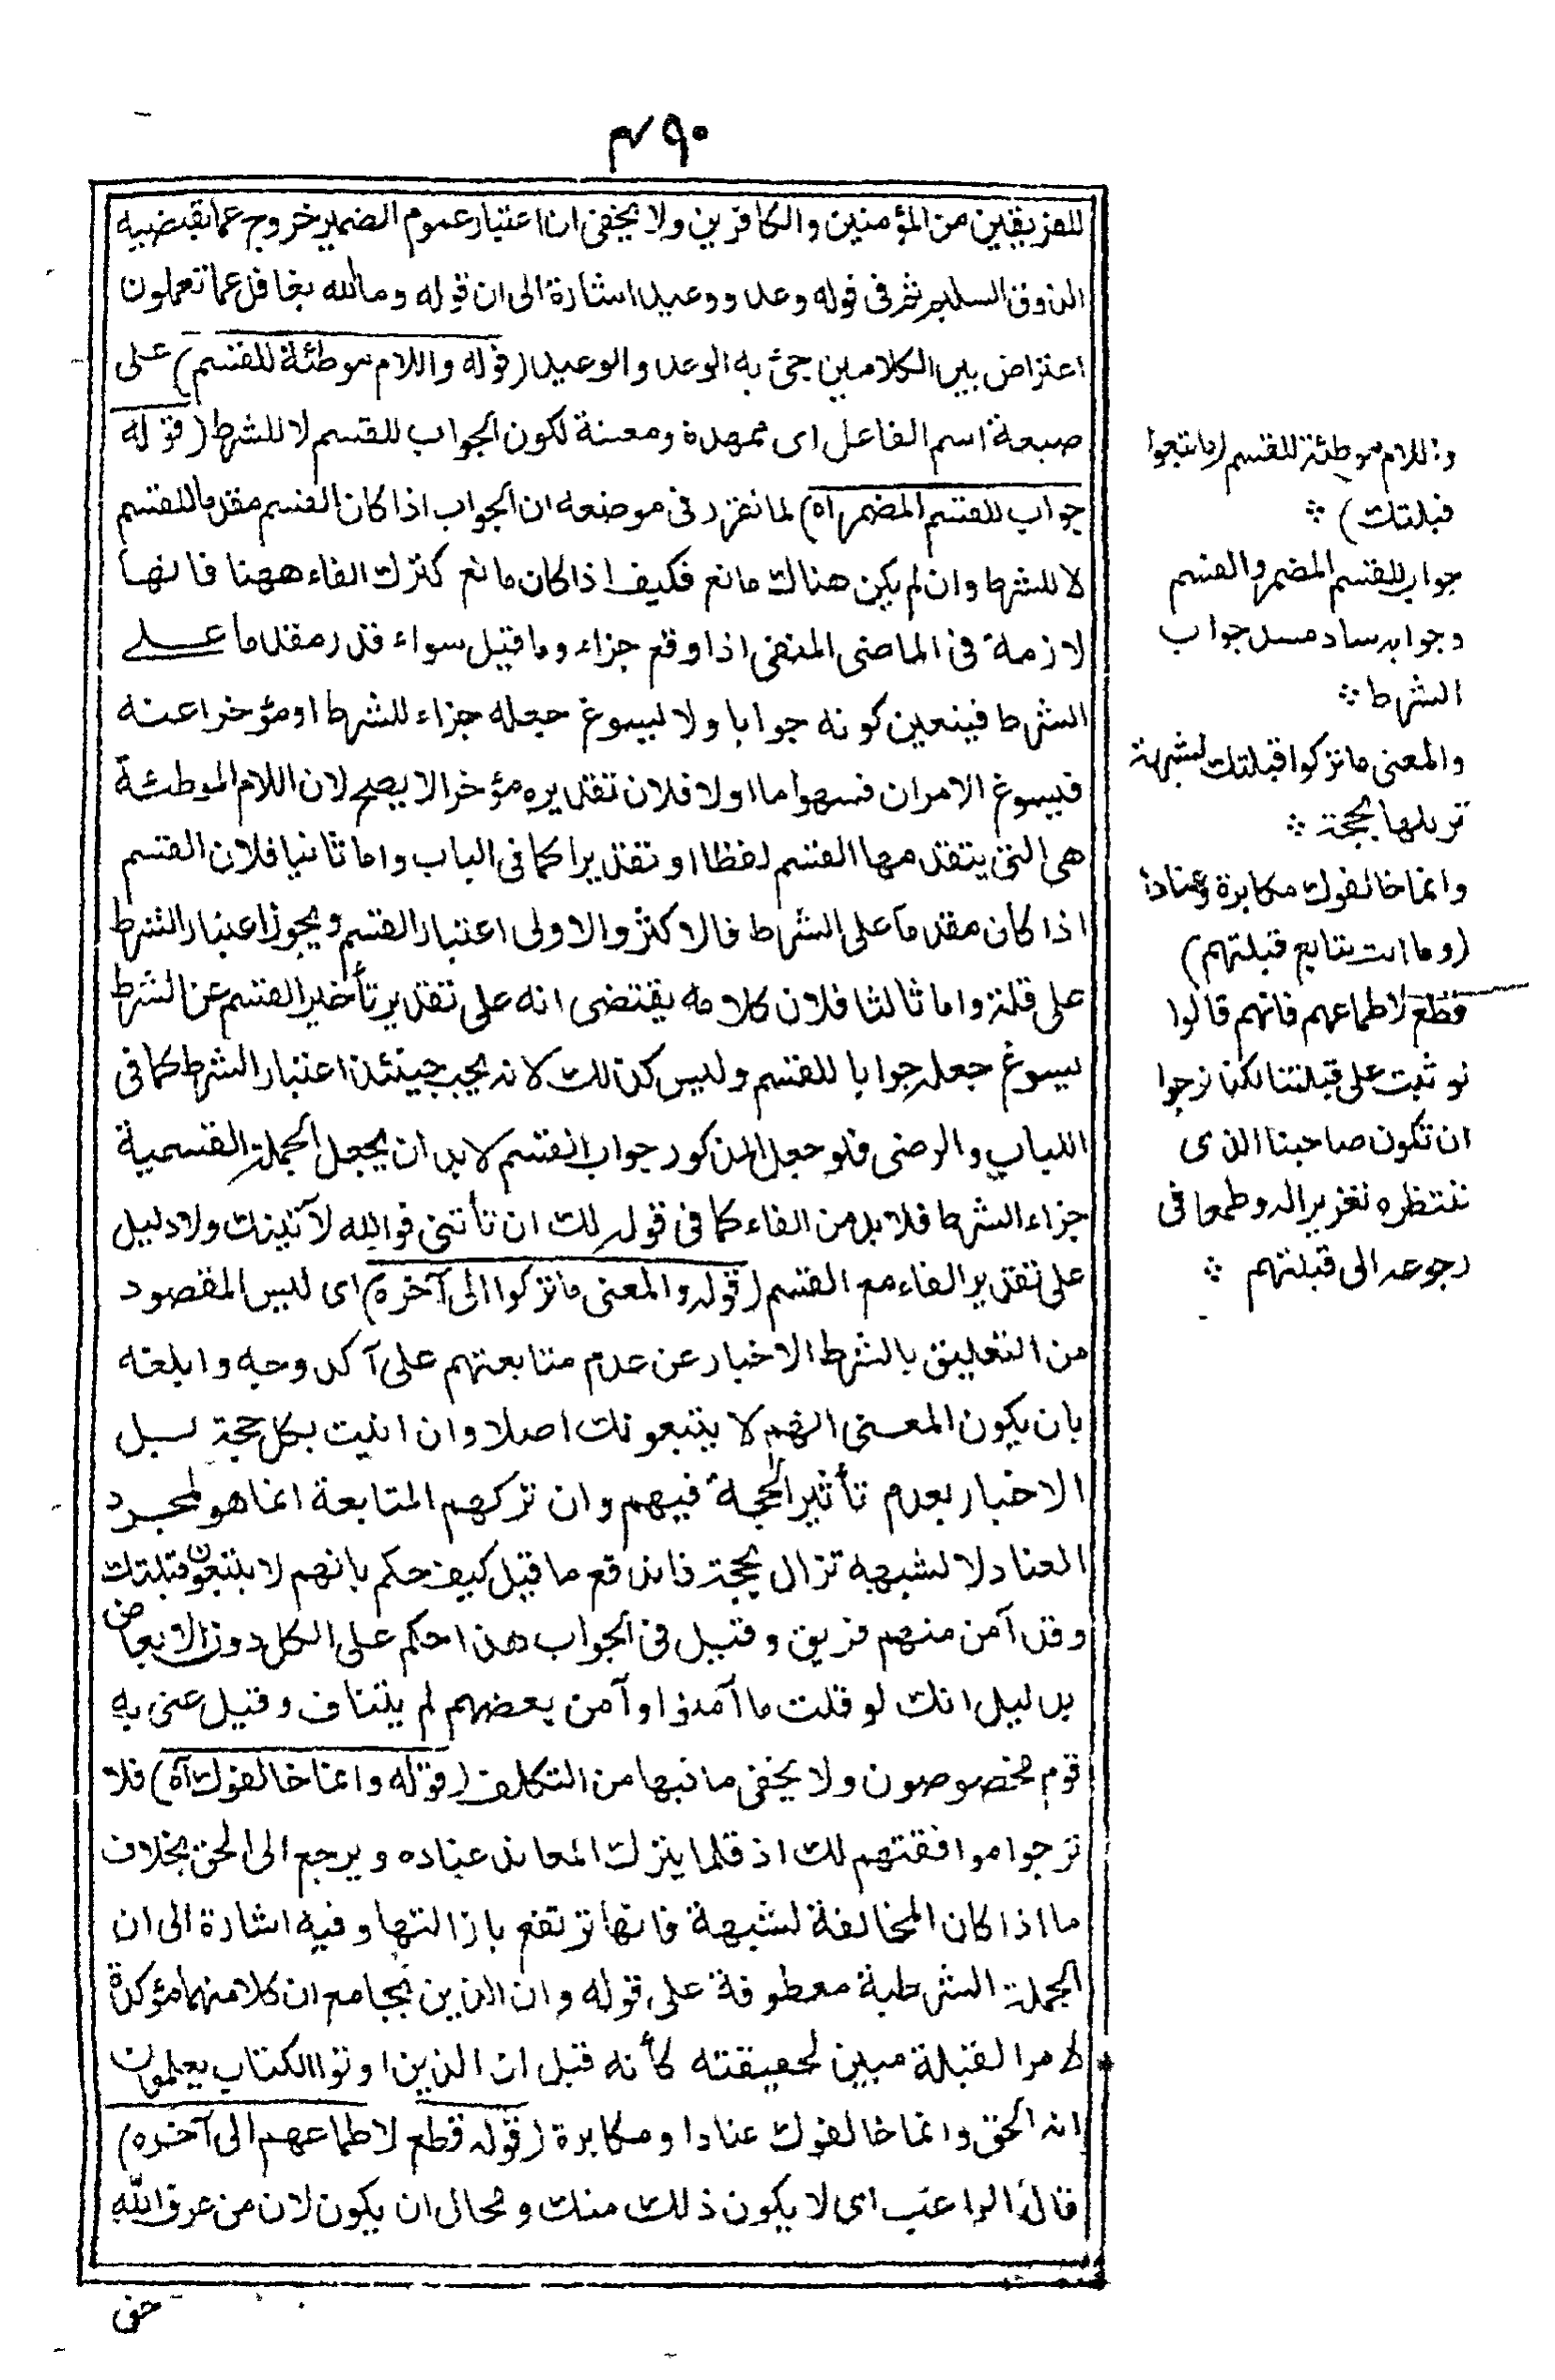 ٤٩٠
للفريقين من المؤمنين والكافرين ولا يخفى ان اعتبار عموم الضمير خروج عما يقتضيه
الذوق السليم ثم فى قوله وعد ووعيد اشارة الى ان قوله وما الله بغافل عما تعملون
اعتراض بين الكلامين جئ به الوعد والوعيد (قوله واللام موطئة للقسم) على
صيغة اسم الفاعل اى ممهدة ومعينة لكون الجواب للقسم لا للشرط (قوله
جواب للقسم المضمر اه) لما تقرر فى موضعه ان الجواب اذا كان القسم مقدما للقسم
لا للشرط وان لم يكن هناك مانع فكيف اذا كان مانع كترك الفاء ههنا فانها
لازمة فى الماضى المنفى اذا وقع جزاء وما قيل سواء قدر مقدما على
الشرط فيتعين كونه جوابا ولا يسوغ جعله جزاء للشرط او مؤخرا عنه
فيسوغ الامران فسهو اما اولا فلان تقديره مؤخرا لا يصح لان اللام الموطئة
هى التى يتقدمها القسم لفظا او تقديرا كما فى الباب واما ثانيا فلان القسم
اذا كان مقدما على الشرط فالاكثر والاولى اعتبار القسم ويجوز اعتبار الشرط
على قلة واما ثالثا فلان كلامه يقتضى انه على تقدير تأخير القسم عن الشرط
يسوغ جعله جوابا للقسم وليس كذلك لانه يجب حينئذ اعتبار الشرط كما فى
اللباب والرضى فلو جعل المذكور جواب القسم لابد ان يجعل الجملة القسمية
جزاء الشرط فلابد من الفاء كما فى قولك ان تأتنى فوالله لآتينك ولا دليل
على تقدير الفاء مع القسم (قوله والمعنى ما تركوا الى آخره) اى ليس المقصود
من التعليق بالشرط الاخبار عن عدم متابعتهم على آكد وجه وابلغه
بان يكون المعنى انهم لا يتبعونك اصلا وان اتيت بكل حجة بل
الاخبار بعدم تأثير الحجة فيهم وان تركهم المتابعة انما هو لمجرد
العناد لا لشبهة تزال بحجة فاندفع ما قيل كيف حكم بانهم لا يتبعون قبلتك
وقد آمن منهم فريق وقيل فى الجواب هذا حكم على الكل دون الابعاض
بدليل انك لو قلت ما آمنوا وآمن بعضهم لم يتناف وقيل عنى به
قوم مخصوصون ولا يخفى ما فيها من التكلف (قوله وانما خالفوك اه) فلا
ترجوا موافقتهم لك اذ قلما يترك المعاند عناده ويرجع الى الحق بخلاف
ما اذا كان المخالفة لشبهة فانها ترتفع بازالتها وفيه اشارة الى ان
الجملة الشرطية معطوفة على قوله وان الذين بجامع ان كلا منهما مؤكدة
لامر القبلة مبين لحقيقته كأنه قيل ان الذين اوتوا الكتاب يعلمون
انه الحق وانما خالفوك عنادا ومكابرة (قوله قطع لاطماعهم الى آخره)
قال الراغب اى لا يكون ذلك منك ومحال ان يكون لان من عرف الله
حق
واللام موطئة للقسم (ما تبعوا
قبلتك) ؞
جواب للقسم المضمر والقسم
وجوابه ساد مسد جواب
الشرط ؞
والمعنى ما تركوا قبلتك لشبهة
تزيلها بحجة ؞
وانما خالفوك مكابرة وعنادا
(وما انت بتابع قبلتهم)
قطع لاطماعهم فانهم قالوا
لو ثبت على قبلتنا لكنا نرجوا
ان تكون صاحبنا الذى
ننتظره تغريرا له وطمعا فى
رجوعه الى قبلتهم ؞